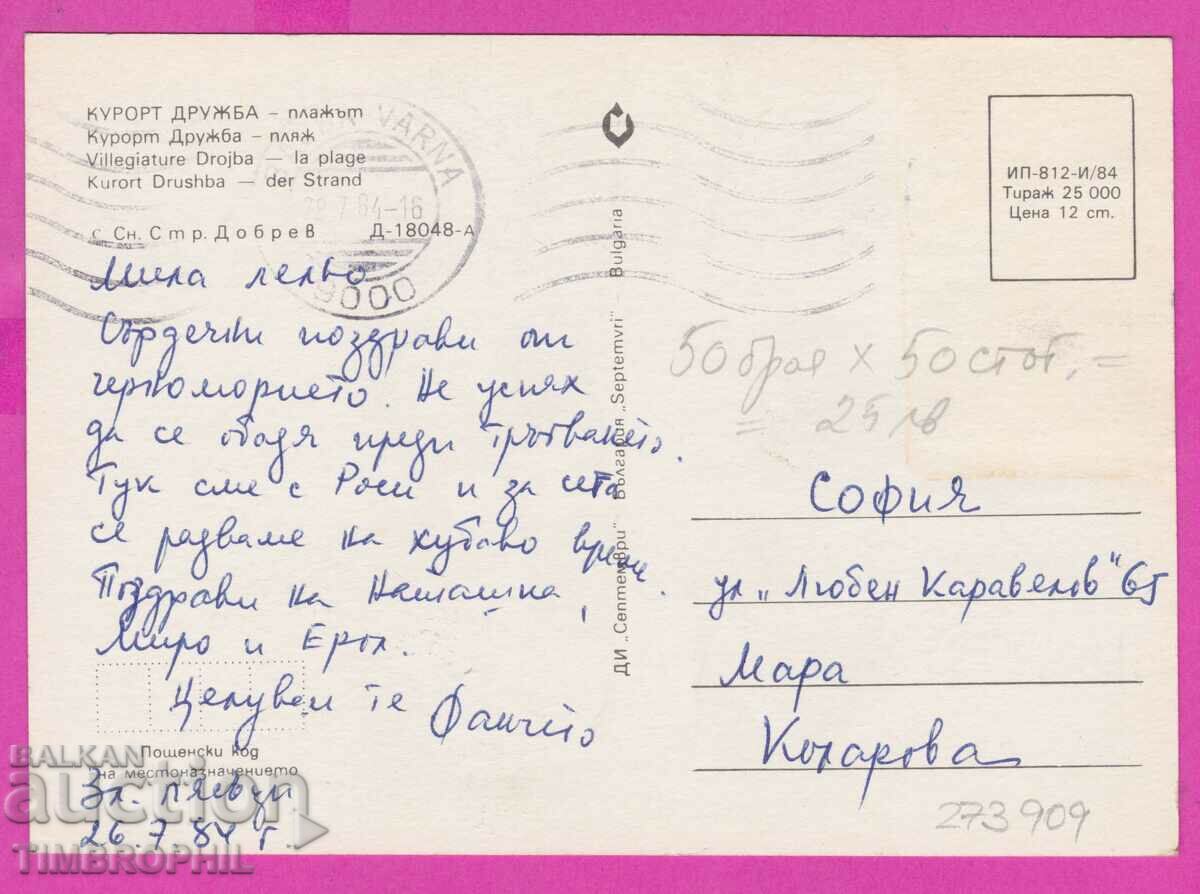 КУРОРТ ДРУЖБА – плажът
Курорт Дружба – пляж
Villegiature Drojba — la plage
Kurort Drushba — der Strand
с Сн. Стр. Добрев Д-18048-А
VARNA
28.7.84-16
9000
Мила лельо
Сърдечни поздрави от
черноморието. Не успях
да се обадя преди тръгването.
Тук сме с Роси и за сега
се радваме на хубаво време.
Поздрави на Наташка,
Миро и Ерол.
Целувам те Фанчето
Пощенски код
на местоназначението
Зл. пясъци
26.7.84 г.
ДИ „Септември" България „Septemvri" Bulgaria
ИП-812-И/84
Тираж 25 000
Цена 12 ст.
50 броя x 50 стот. =
= 25 лв
София
ул „Любен Каравелов" 65
Мара
273909
BALKAN
auction
TIMBROPHIL